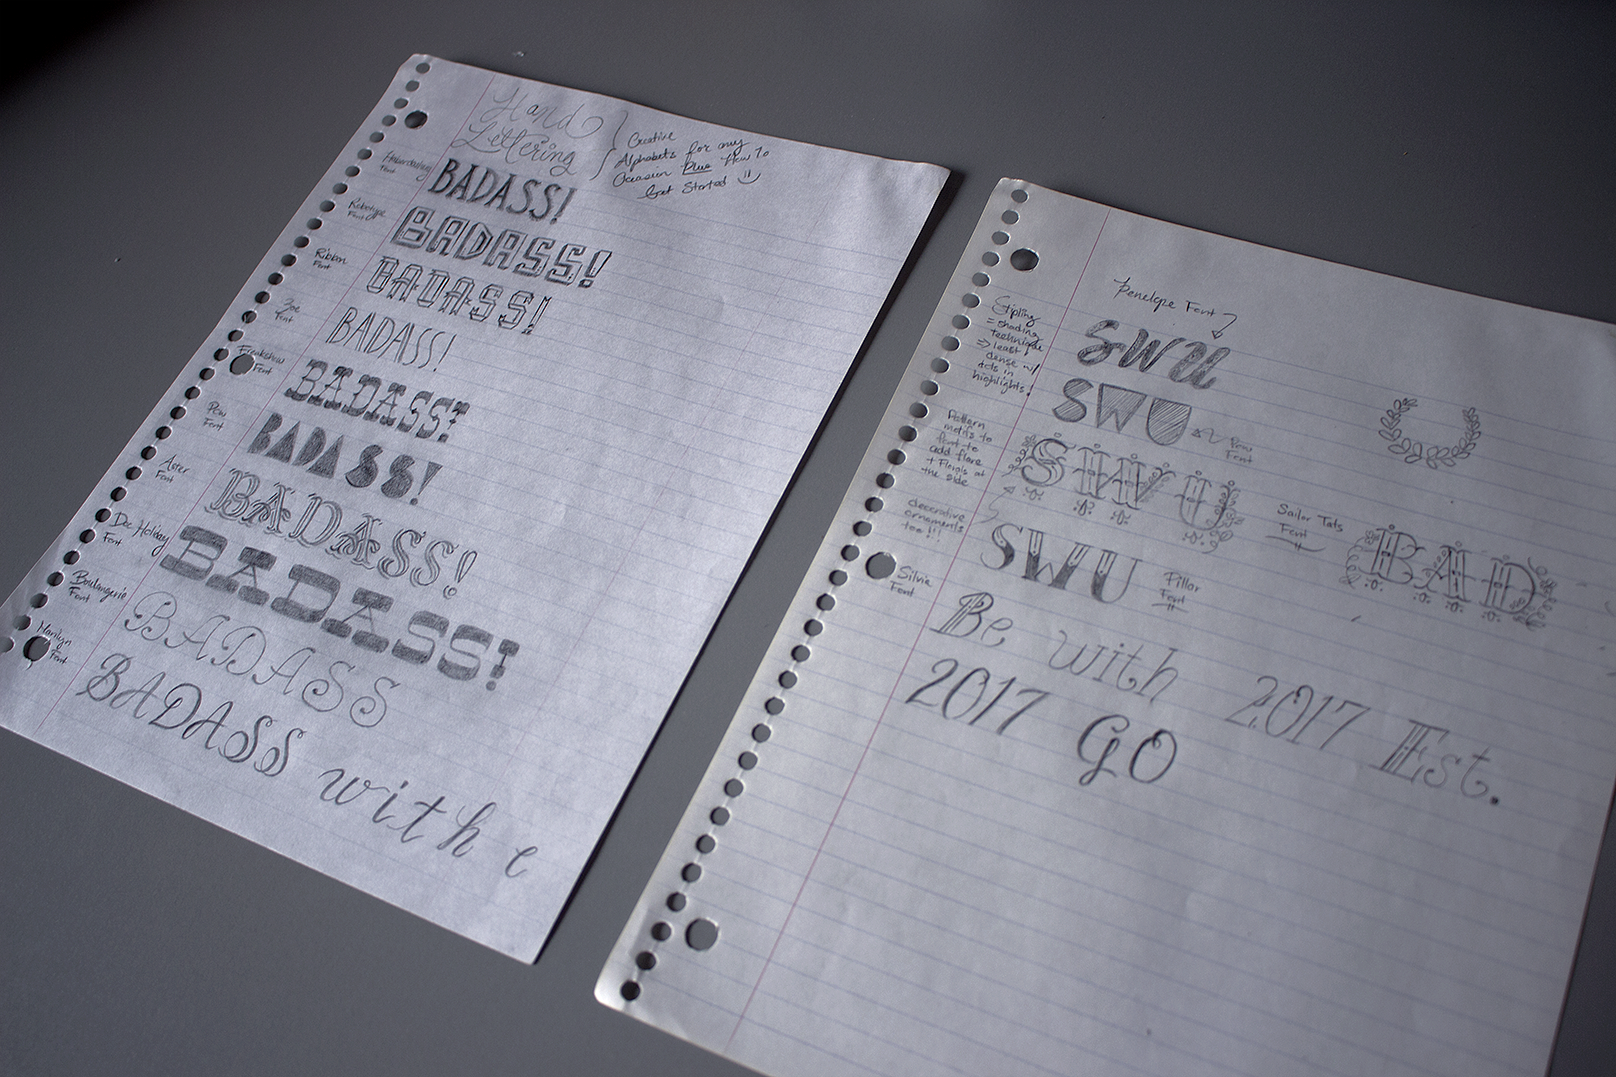 Hand
Lettering
Creative
Alphabets for any
Occasion Plus How To
Get Started
Haberdashery
Font
BADASS!
Robotype
Font
BADASS!
Ribbon
Font
BADASS!
Zoe
Font
BADASS!
Freakshow
Font
BADASS!
Pow
Font
BADASS!
Aster
Font
BADASS!
Doc Holiday
Font
BADASS!
Boulangerie
Font
BADASS
Marilyn
Font
BADASS with e
Penelope Font
SWU
Stipling
= shading
technique
=> least
dense w/
dots in
highlights!
SWU
Pow
Font
Pattern
motifs to
font to
add flare
+ Florals at
the side
SWU
Sailor Tats
Font
BAD
decorative
ornaments
too!!!
SWU
Pillar
Font
Silvia
Font
Be with 2017 Est.
2017 GO